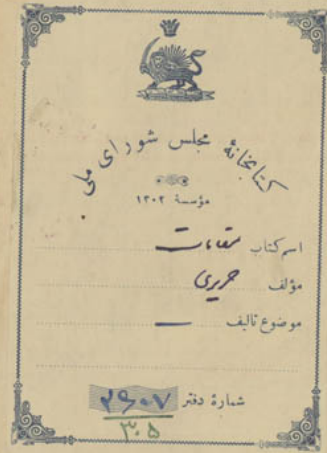 کتابخانهٔ مجلس شورای ملی
مؤسسهٔ ۱۳۰۲
اسم کتاب مقامات
مؤلف حریری
موضوع تألیف
شمارهٔ دفتر ۲۹۶۰۷
۳۰۵